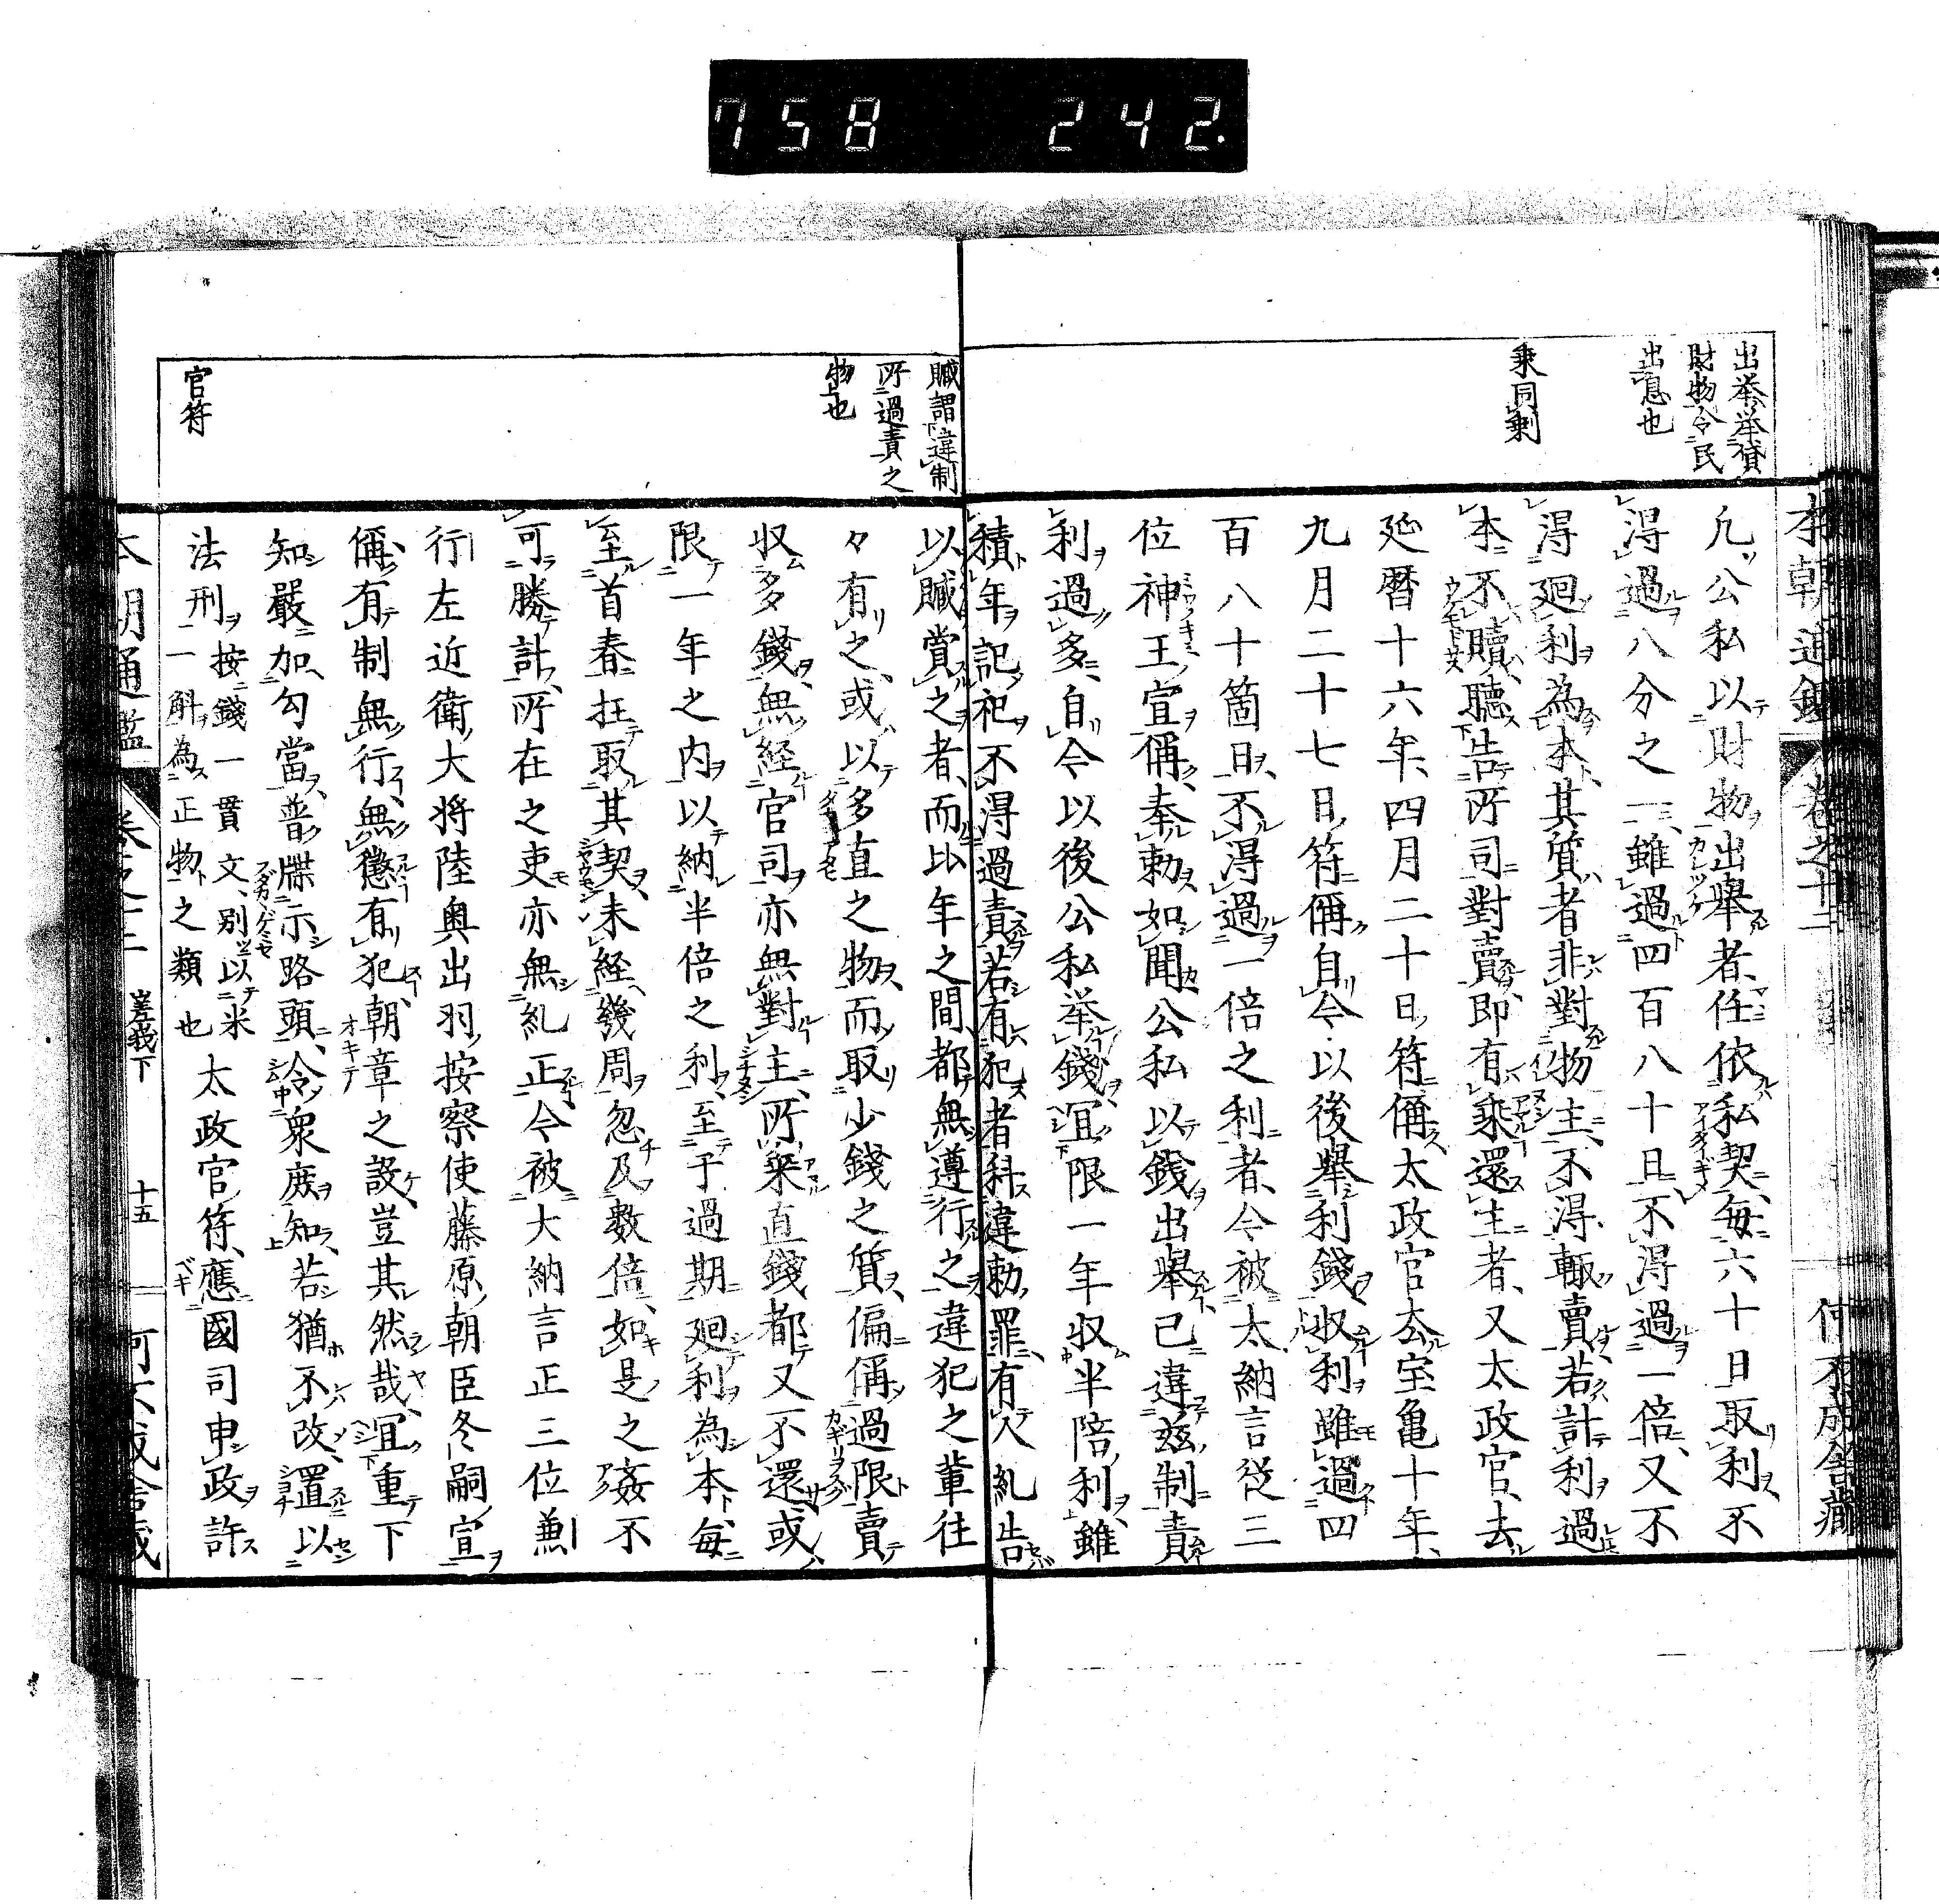 758 242.
出挙挙貸
財物令民
出息也
乗同剰
凢公私以財物出舉者、任依私契、毎六十日取利、不
得過八分之一、雖過四百八十日、不得過一倍、又不
得廻利為本、其質者非對物主、不得輙賣、若計利過
本不贖、聴告所司對賣、即有乗還主者、又太政官、去
延暦十六年、四月二十日、符偁、太政官去宝亀十年、
九月二十七日、符偁、自今以後、舉利錢収利、雖過四
百八十箇日、不得過一倍之利者、今被大納言従三
位神王宣偁、奉勅、如聞、公私以錢出舉、已違茲制、責
利過多、自今以後公私挙錢、冝限一年収半陪利、雖
積年記祀、不得過責、若有犯者、科違勅罪、有人糺告
贓謂違制
所過責之
物也
官符
以贓賞之者、而比年之間、都無遵行之、違犯之輩往
々有之、或以多直之物、而取少錢之質、偏偁過限、賣
収多錢、無経官司、亦無對主、所乗直錢、都又不還、或
限一年之内、以納半倍之利、至于過期、廻利為本、毎
至首春、抂取其契、未経幾周、忽及數倍、如是之姦不
可勝計、所在之吏亦無糺正、今被大納言正三位兼
行左近衛大将陸奥出羽按察使藤原朝臣冬嗣宣
偁、有制無行、無懲有犯、朝章之設、豈其然哉、冝重下
知嚴加勾當、普牒示路頭、令衆庶知、若猶不改、置以
法刑
按錢一貫文、別以米
一斛為正物之類也
太政官符、應國司申政許
本朝通鑑 卷之十二 嵯峨下 十五